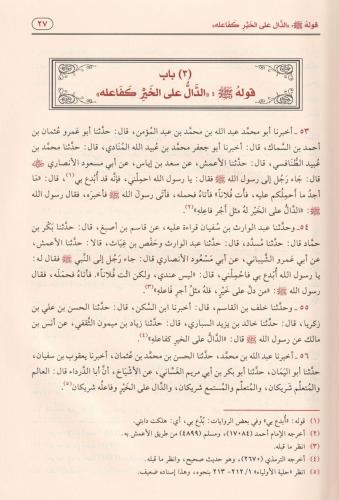 قولهُ ﷺ: «الدَّال على الخَيْر كفاعله»
٢٧
(٣) باب
قولهُ ﷺ: «الدَّالُّ على الخَيْر كفَاعله»
٥٣ ـ أخبرنا أبو محمَّد عبد الله بن محمَّد بن عبد المؤمن، قال: حدَّثنا أبو عمرو عثمان بن
أحمد بن السمَّاك، قال: أخبرنا أبو جعفر محمَّد بن عُبيد الله المُنَادي، قال: حدَّثنا محمَّد بن
عُبيد الطَّنافسي، قال: حدَّثنا الأعمش، عن سعد بن إياس، عن أبي مسعود الأنصاري
قال: جاء رجُل إلى رسول الله ﷺ فقال: يا رسول الله احملْني، فإنَّه قد أُبْدع بي(١)، قال: «ما
أجدُ ما أحملُكم عليه، فأْت فُلاناً» فأتاهُ فحمله، فأتى رسولَ الله ﷺ فأخبره، فقال رسول الله
ﷺ: «الدَّالُّ على الخَيْر لهُ مثل أجْر فاعله»(٢).
٥٤ ـ وحدَّثنا عبد الوارث بن سُفيان قراءة عليه، عن قاسم بن أصبغ، قال: حدَّثنا بكر بن
حمَّاد قال: حدَّثنا مُسدَّد، قال: حدَّثنا عبد الوارث وحَفْص بن غِياث، قالا: حدَّثنا الأعمش،
عن أبي عَمرو الشَّيباني، عن أبي مَسْعُود الأنصاري قال: جاء رجُل إلى النبي ﷺ فقال له:
يا رسول الله أُبْدع بي فاحْملْني، قال: «ليس عندي، ولكن ائْت فُلاناً». فأتاهُ، فحمله، فقال
رسول الله ﷺ: «من دلَّ على خَيْر، فلهُ مثلُ أجر فاعله»(٣).
٥٥ ـ وحدَّثنا خلف بن القاسم، قال: حدَّثنا ابن السكن، قال: حدَّثنا الحسن بن علي بن
زكريا، قال: حدَّثنا خالد بن يزيد السياري، قال: حدَّثنا زياد بن ميمون الثَّقفي، عن أنس بن
مالك عن رسول الله ﷺ قال: «الدَّال على الخير كفاعله»(٤).
٥٦ ـ أخبرنا عبد الله بن محمد، حدَّثنا الحسن بن محمَّد بن عُثمان، أخبرنا يعقوب بن سفيان،
حدَّثنا أبو اليَمَان، حدَّثنا أبو بكر بن أبي مريم الغسَّاني، عن الأشياخ، أنَّ أبا الدَّرداء قال: العالم
والمتعلَّم شريكان، والمُتعلِّم والمستمع شريكان، والدَّال على الخير وفاعلُه شريكان(٥).
(١) قوله: «أُبدع بي» وفي بعض الروايات: بُدِّع بي، أي: هلكت دابتي.
(٢) أخرجه الإمام أحمد (١٧٠٨٤)، ومسلم (٤٨٩٩) من طريق الأعمش به.
(٣) انظر ما قبله.
(٤) أخرجه الترمذي (٢٦٧٠)، وهو حديث صحيح، وانظر ما قبله.
(٥) انظر «حلية الأولياء» ٢١٢/١ ـ ٢١٣ بنحوه، وهذا إسناده ضعيف.